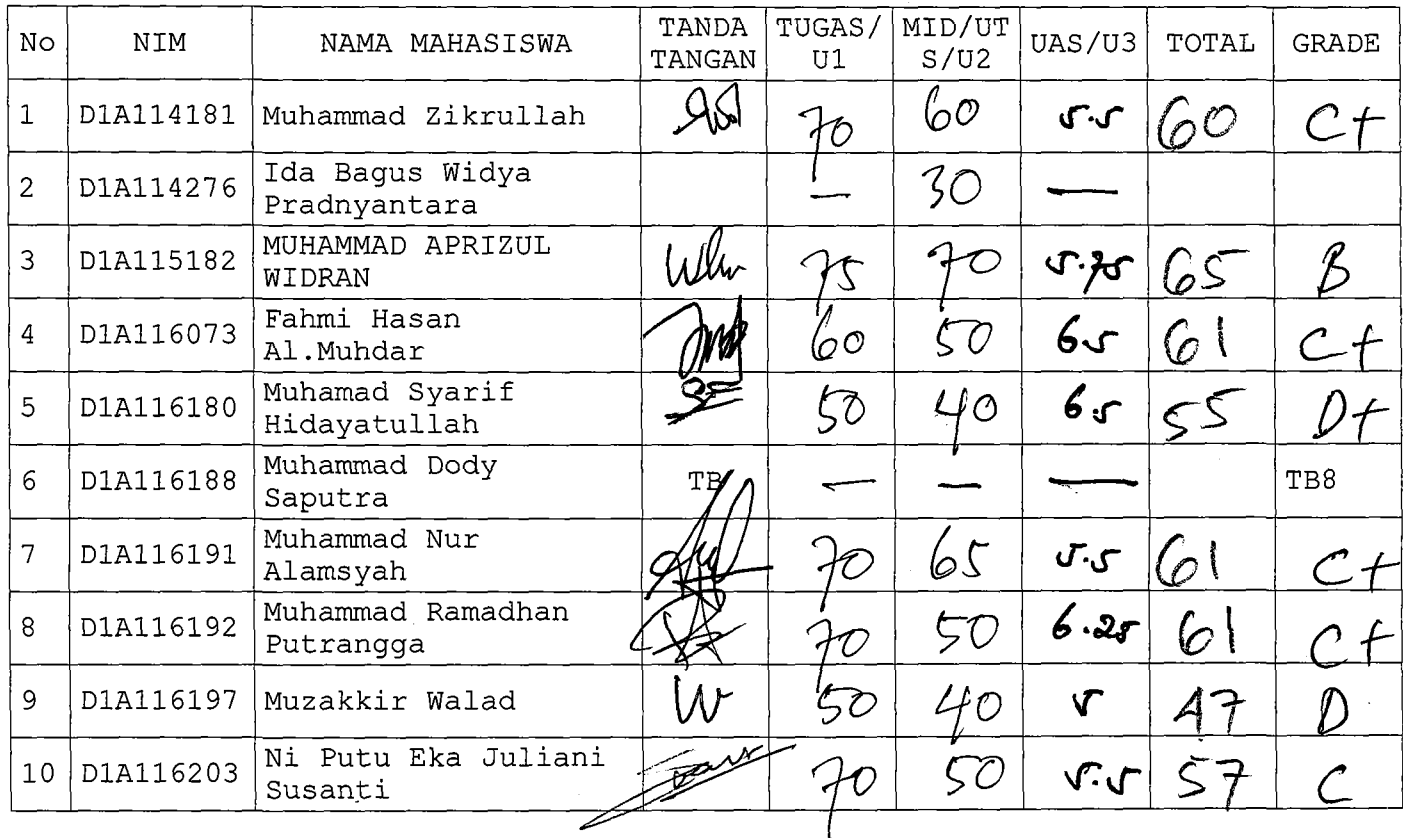 No NIM NAMA MAHASISWA TANDA TANGAN TUGAS/ U1 MID/UT S/U2 UAS/U3 TOTAL GRADE
1 D1A114181 Muhammad Zikrullah 70 60 5.5 60 C+
2 D1A114276 Ida Bagus Widya Pradnyantara — 30 —
3 D1A115182 MUHAMMAD APRIZUL WIDRAN 75 70 5.75 65 B
4 D1A116073 Fahmi Hasan Al.Muhdar 60 50 6.5 61 C+
5 D1A116180 Muhamad Syarif Hidayatullah 50 40 6.5 55 D+
6 D1A116188 Muhammad Dody Saputra TB — — — TB8
7 D1A116191 Muhammad Nur Alamsyah 70 65 5.5 61 C+
8 D1A116192 Muhammad Ramadhan Putrangga 70 50 6.25 61 C+
9 D1A116197 Muzakkir Walad 50 40 5 47 D
10 D1A116203 Ni Putu Eka Juliani Susanti 70 50 5.5 57 C